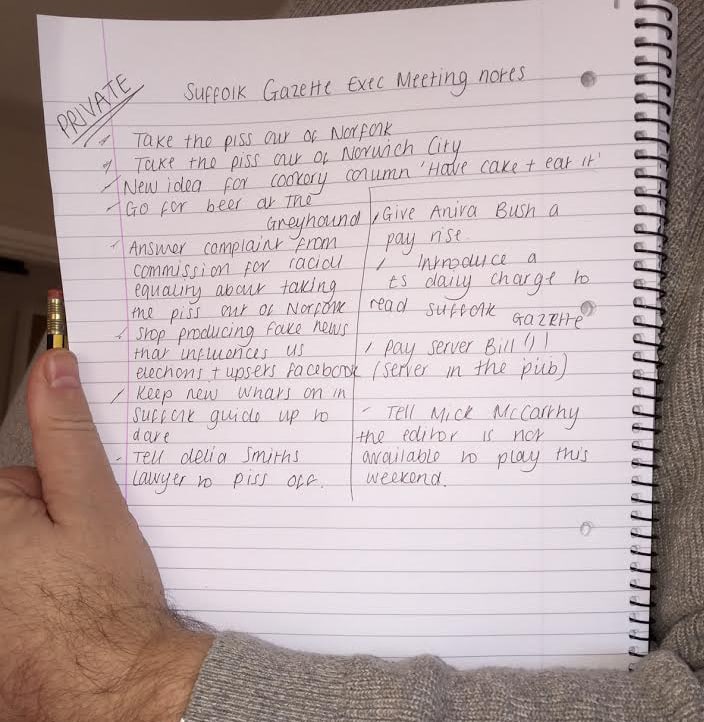 PRIVATE
Suffolk Gazette Exec Meeting notes
Take the piss out of Norfolk
Take the piss out of Norwich City
New idea for cookory column 'Have cake + eat it'
Go for beer at the
Greyhound
Answer complaint from
commission for racial
equality about taking
the piss out of Norfolk
Stop producing fake news
that influences us
elections + upsets facebook
Keep new whats on in
Suffolk guide up to
date
Tell delia smiths
lawyer to piss off.
Give Anita Bush a
pay rise.
Introduce a
£5 daily charge to
read Suffolk
Gazette
Pay server Bill !!!
(server in the pub)
- Tell Mick McCarthy
the editor is not
available to play this
weekend.